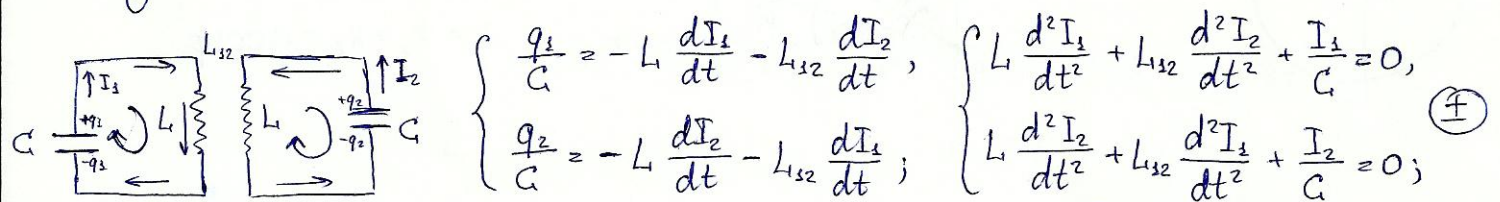 L₁₂
I₁
I₂
+q₁
-q₁
+q₂
-q₂
C
L
L
C
q₁/C = -L dI₁/dt - L₁₂ dI₂/dt ,
q₂/C = -L dI₂/dt - L₁₂ dI₁/dt ;
L d²I₁/dt² + L₁₂ d²I₂/dt² + I₁/C = 0,
L d²I₂/dt² + L₁₂ d²I₁/dt² + I₂/C = 0;